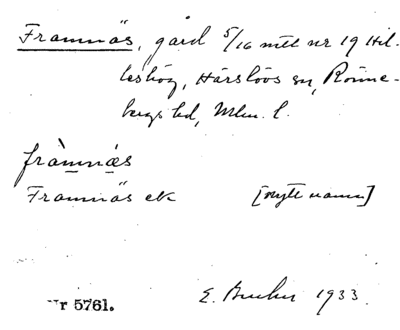 Framnäs, gård 5/16 mtl nr 19 Hil-
leshög, Härslövs sn, Rönne-
bergs hd, Mlm. l.
fràmnæs
Framnäs etc [nytt namn]
r 5761. E. 1933.